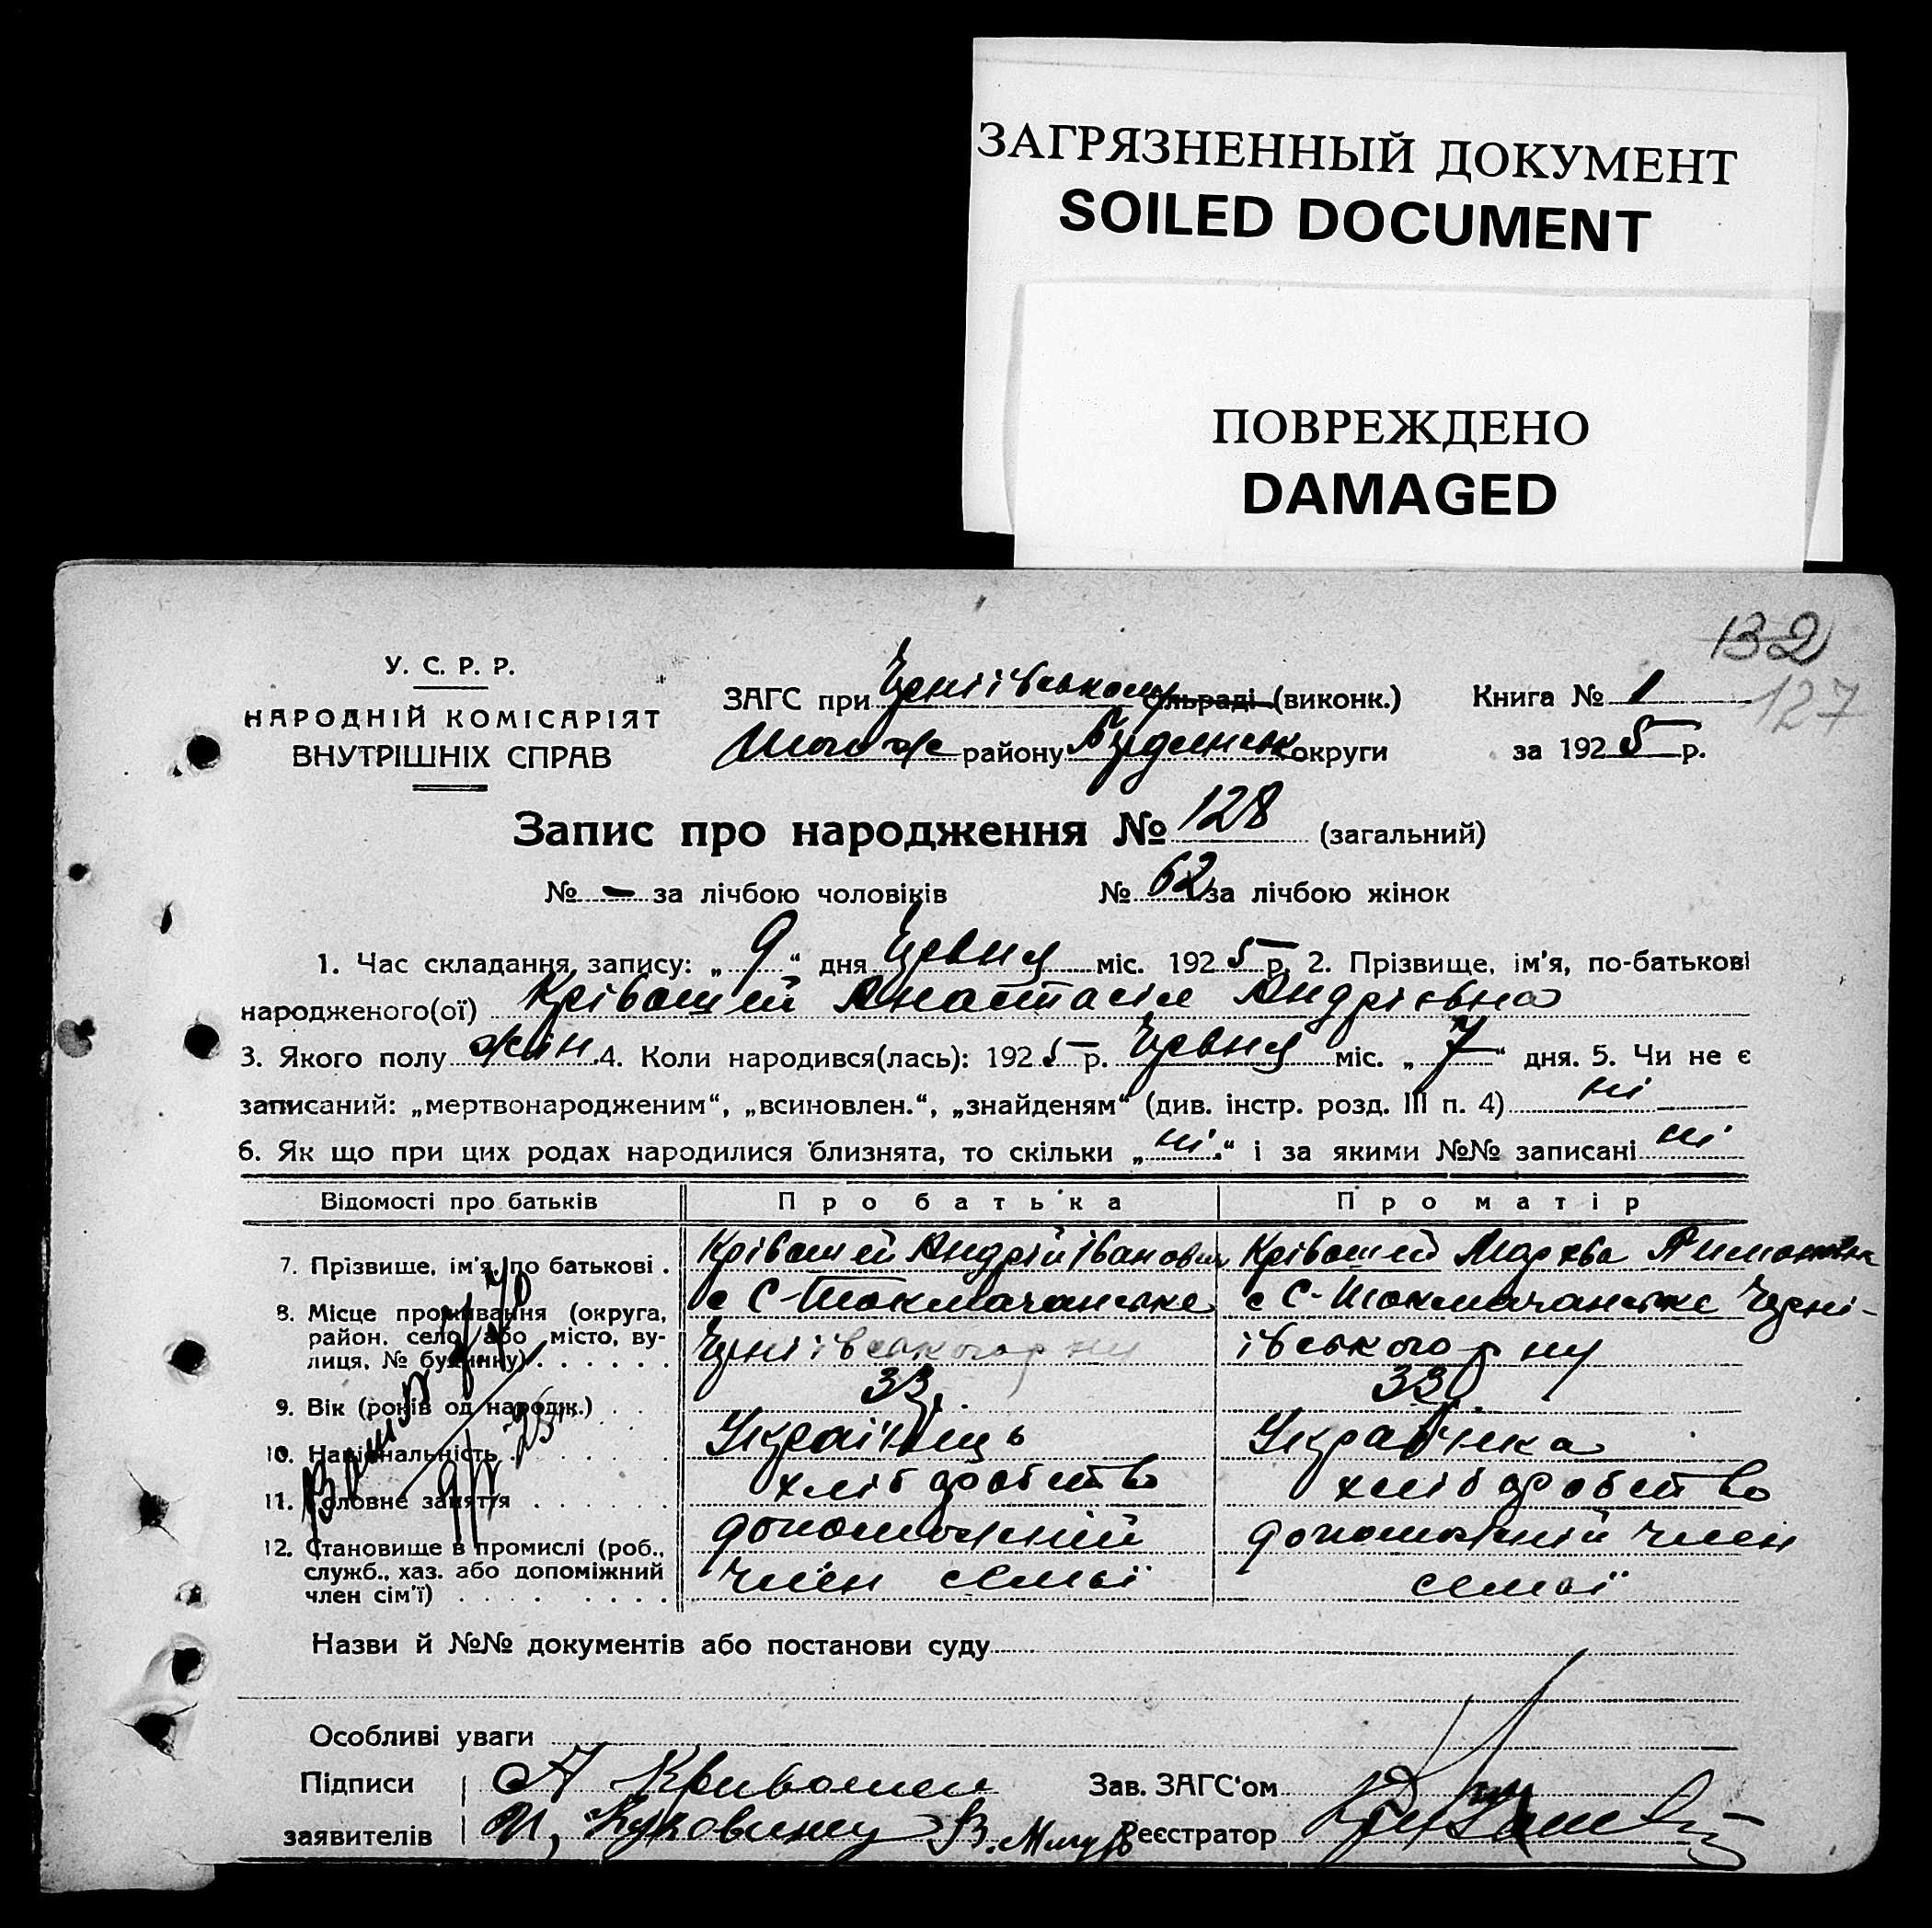 ЗАГРЯЗНЕННЫЙ ДОКУМЕНТ
SOILED DOCUMENT
ПОВРЕЖДЕНО
DAMAGED
132
127
У. С. Р. Р.
НАРОДНІЙ КОМІСАРІЯТ
ВНУТРІШНІХ СПРАВ
ЗАГС при Черніівському сільраді (виконк.) Книга № 1
району округи за 1925 р.
Запис про народження № 128 (загальний)
№ - за лічбою чоловіків № 62 за лічбою жінок
1. Час складання запису: „9“ дня Червня міс. 1925 р. 2. Прізвище, ім'я, по-батькові
народженого(ої) Крівошей Анастасія Андріівна
3. Якого полу жін. 4. Коли народився(лась): 1925 р. Червня міс. „7“ дня. 5. Чи не є
записаний: „мертвонародженим“, „всиновлен.“, „знайденям“ (див. інстр. розд. III п. 4) ні
6. Як що при цих родах народилися близнята, то скільки „ні“ і за якими №№ записані ні
Відомості про батьків Про батька Про матір
7. Прізвище, ім'я, по батькові . Крівошей Андрій Іванович Крівошей Мархва
8. Місце проживання (округа, с С-Токмачанське с С-Токмачанське Черні-
район, село або місто, ву-
лиця, № будинку) . . . . . . Черніівського р ну івського р ну
9. Вік (років од народж.) . . 33 33
10. Національність . . . . . . Українець Українка
11. Головне заняття . . . . . . хліборобство хліборобство
12. Становище в промислі (роб., допоможній допоможній член
служб., хаз. або допоміжний член семьї семьї
член сім'ї) . . . . . . .
Назви й №№ документів або постанови суду
Особливі уваги
Підписи А Кривошеи Зав. ЗАГС'ом
заявителів Реєстратор